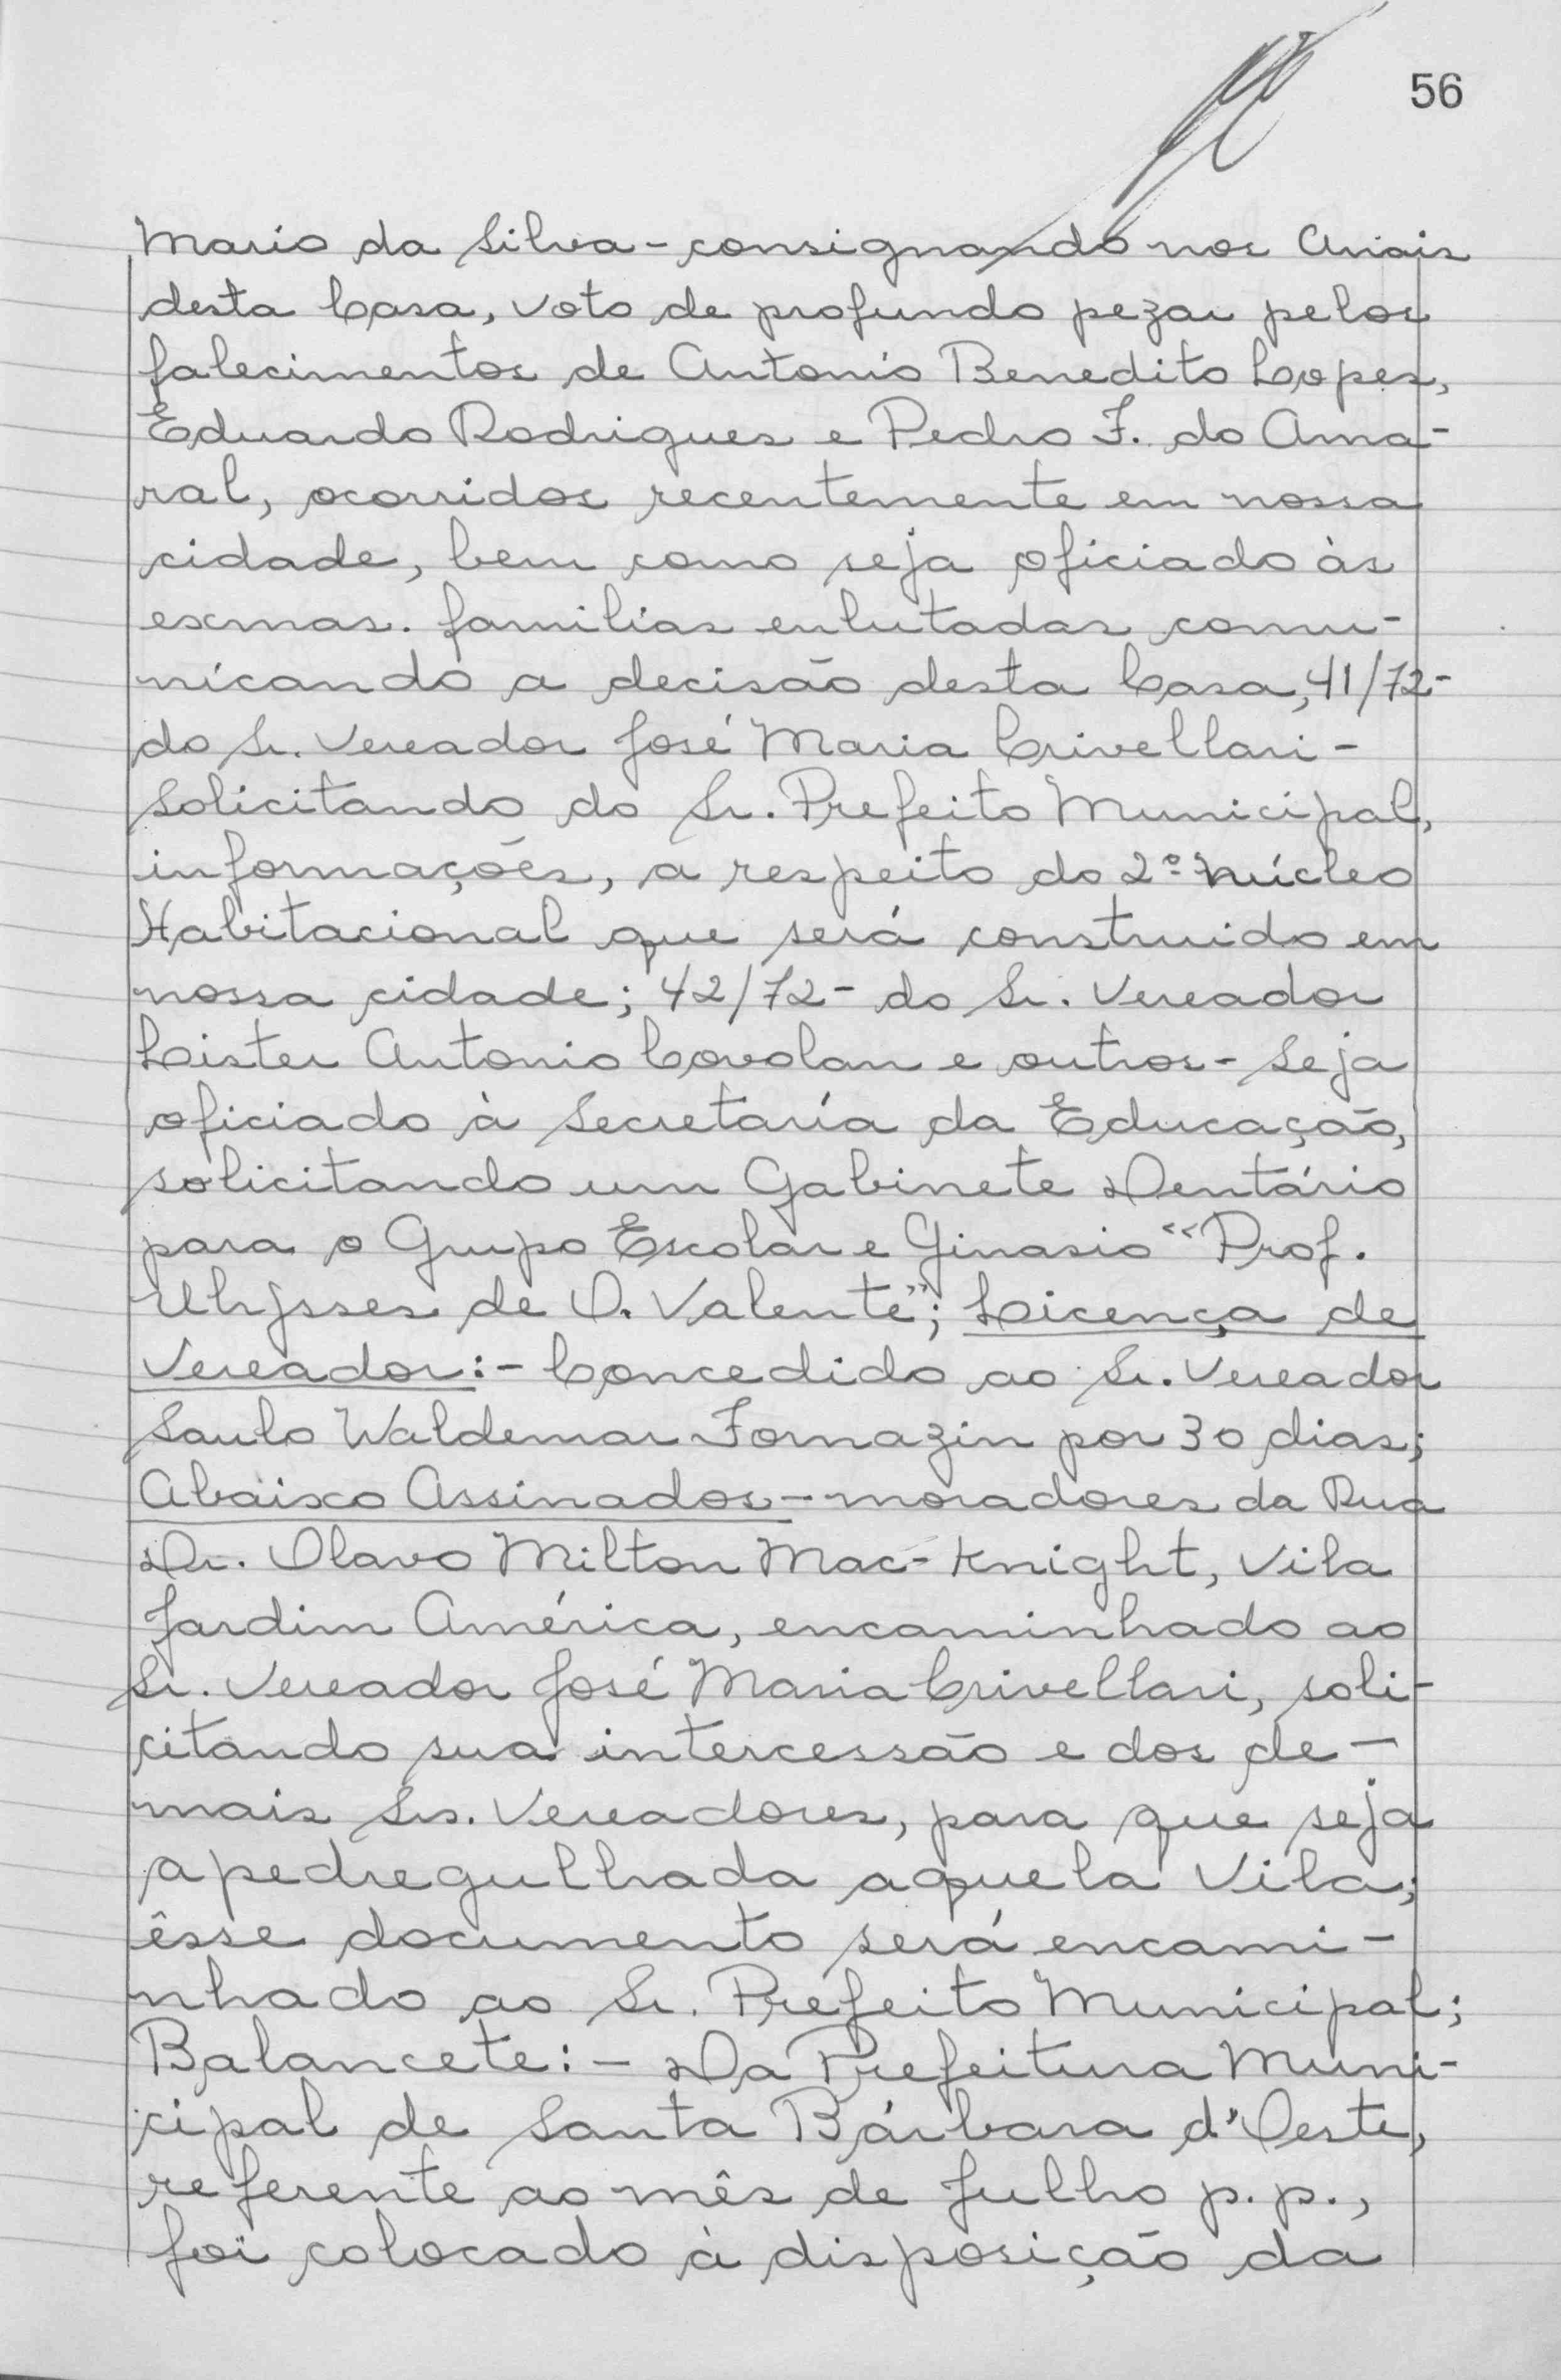 56
Mario da Silva - consignando nos Anais
desta Casa, voto de profundo pezar pelos
falecimentos de Antonio Benedito Lopes,
Eduardo Rodrigues e Pedro F. do Ama-
ral, ocorridos recentemente em nossa
cidade, bem como seja oficiado às
exmas. familias enlutadas comu-
nicando a decisão desta Casa, 41/72-
do Sr. Vereador José Maria Crivellari -
solicitando do Sr. Prefeito Municipal,
informações, a respeito do 2º núcleo
Habitacional que será construido em
nossa cidade; 42/72 - do Sr. Vereador
Lister Antonio Covolan e outros - seja
oficiado à Secretaría da Educação,
solicitando um Gabinete Dentário
para o Grupo Escolar e Ginasio "Prof.
Ulysses de O. Valente"; Licença de
Vereador:- Concedido ao Sr. Vereador
Saulo Waldemar Fornazin por 30 dias;
Abaixo Assinados - moradores da Rua
Dr. Olavo Milton Mac-Knight, Vila
Jardim América, encaminhado ao
Sr. Vereador José Maria Crivellari, soli-
citando sua intercessão e dos de-
mais Srs. Vereadores, para que seja
apedregulhada aquela Vila;
êsse documento será encami-
nhado ao Sr. Prefeito Municipal;
Balancete:- Da Prefeitura Muni-
cipal de Santa Bárbara d'Oeste,
referente ao mês de Julho p.p.,
foi colocado à disposição da